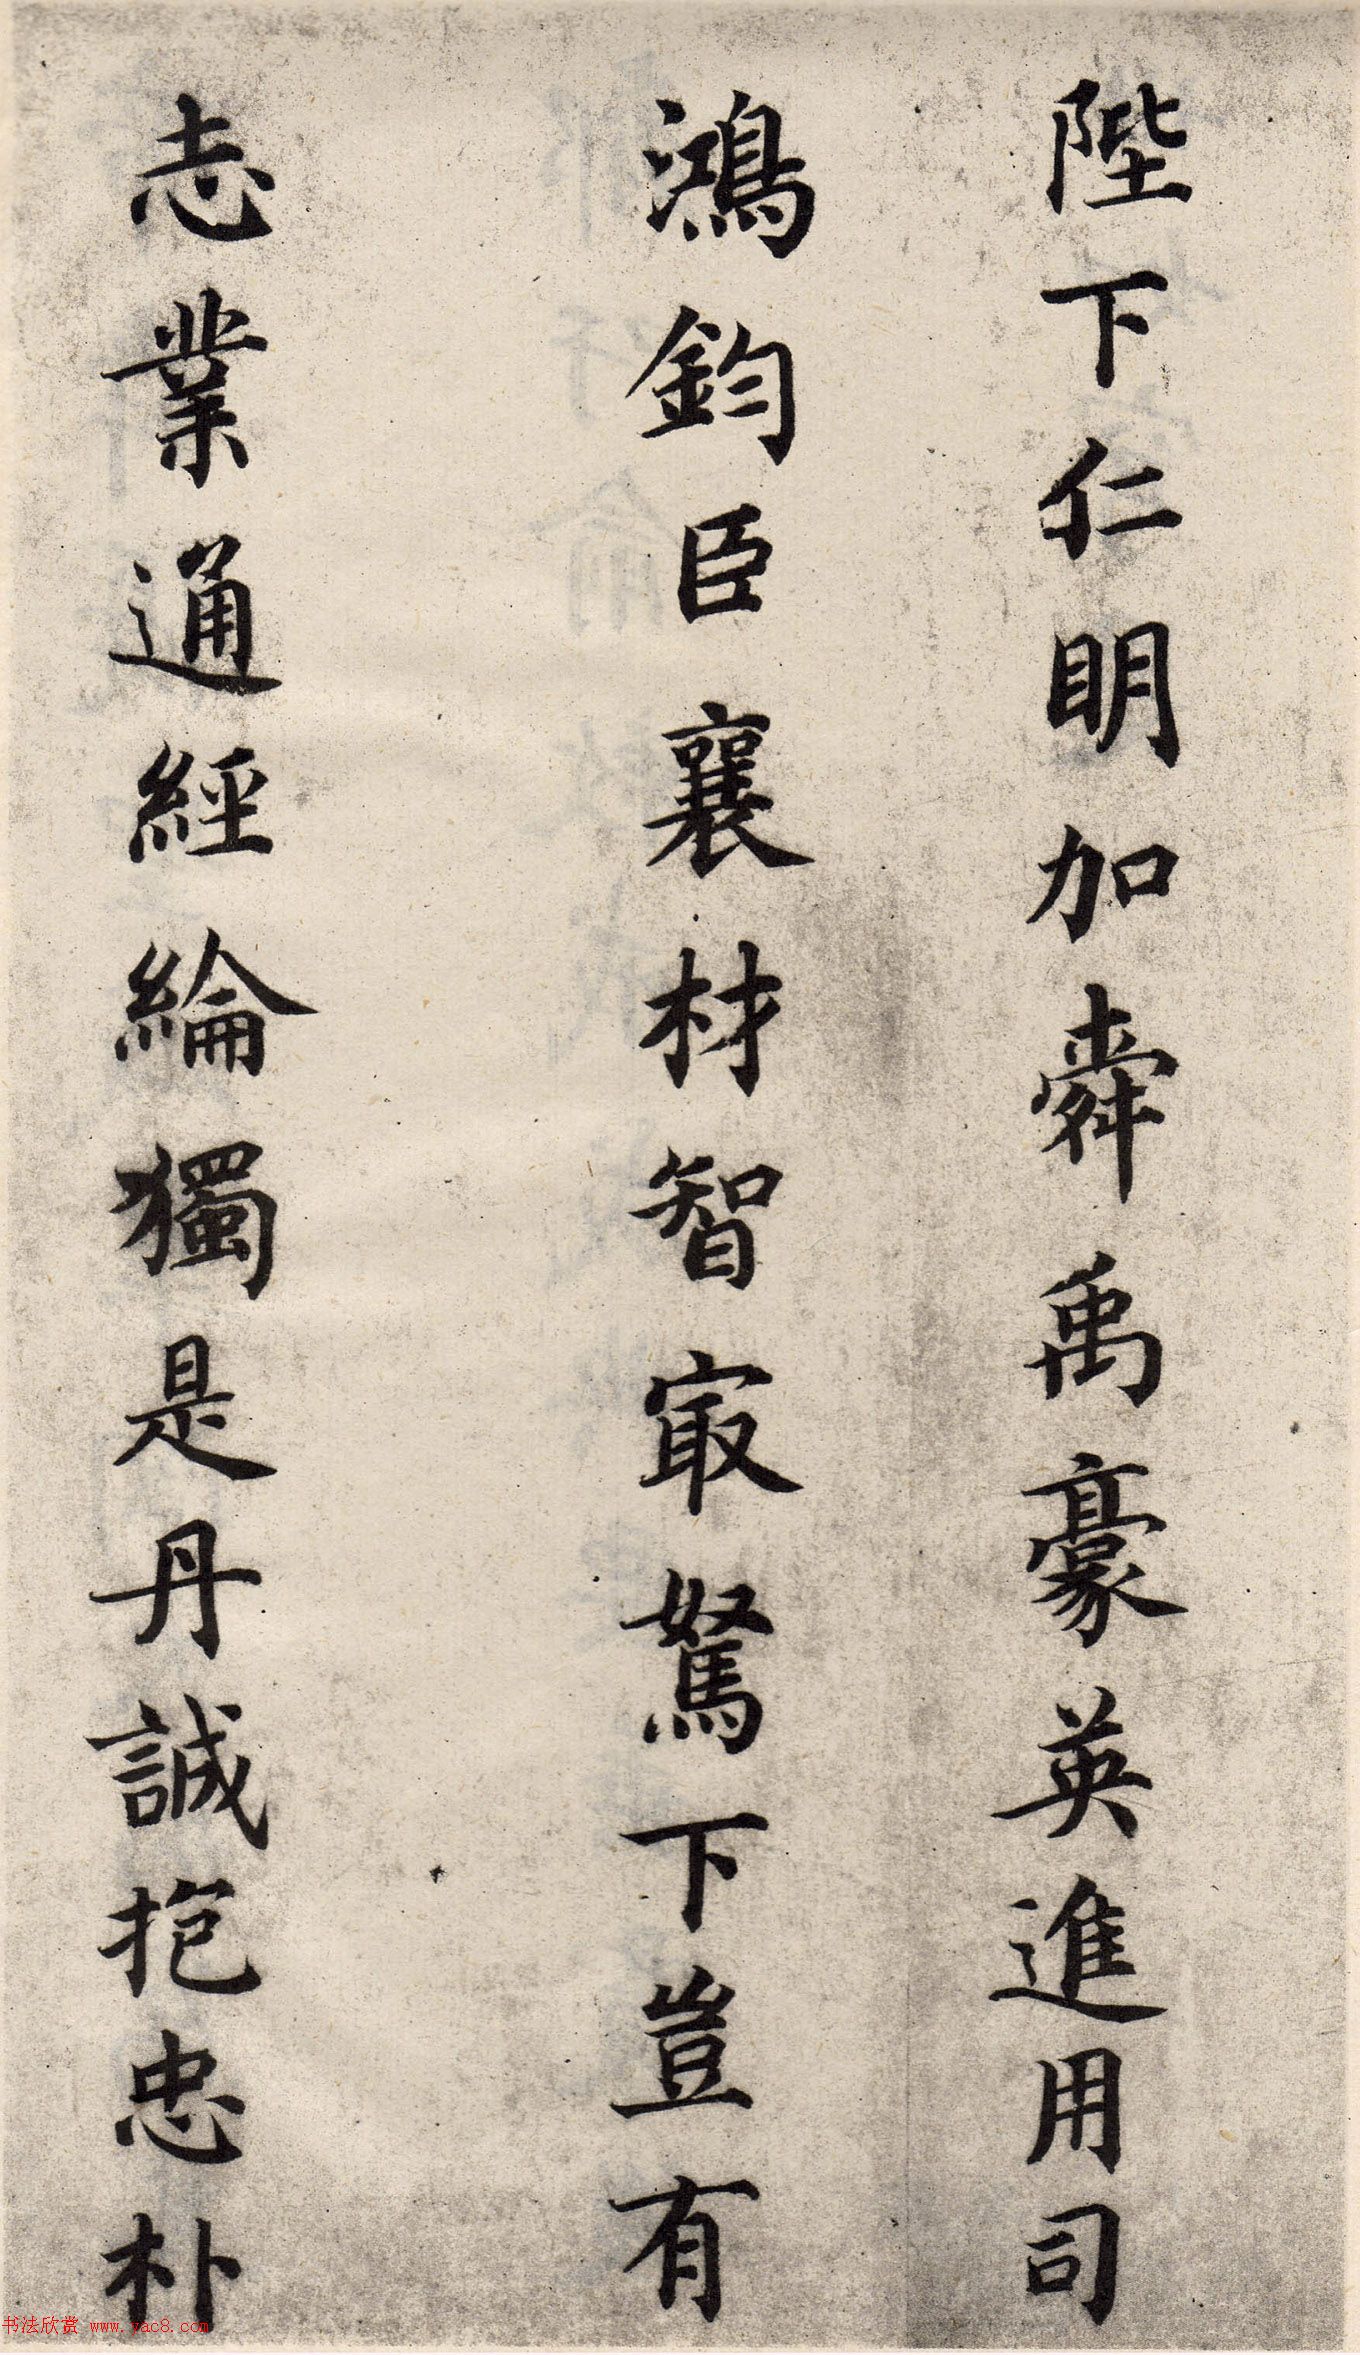 陛下仁明加舜禹豪英進用司
鴻鈞臣襄材智㝡駑下豈有
志業通經綸獨是丹誠抱忠朴
书法欣赏 www.yac8.com